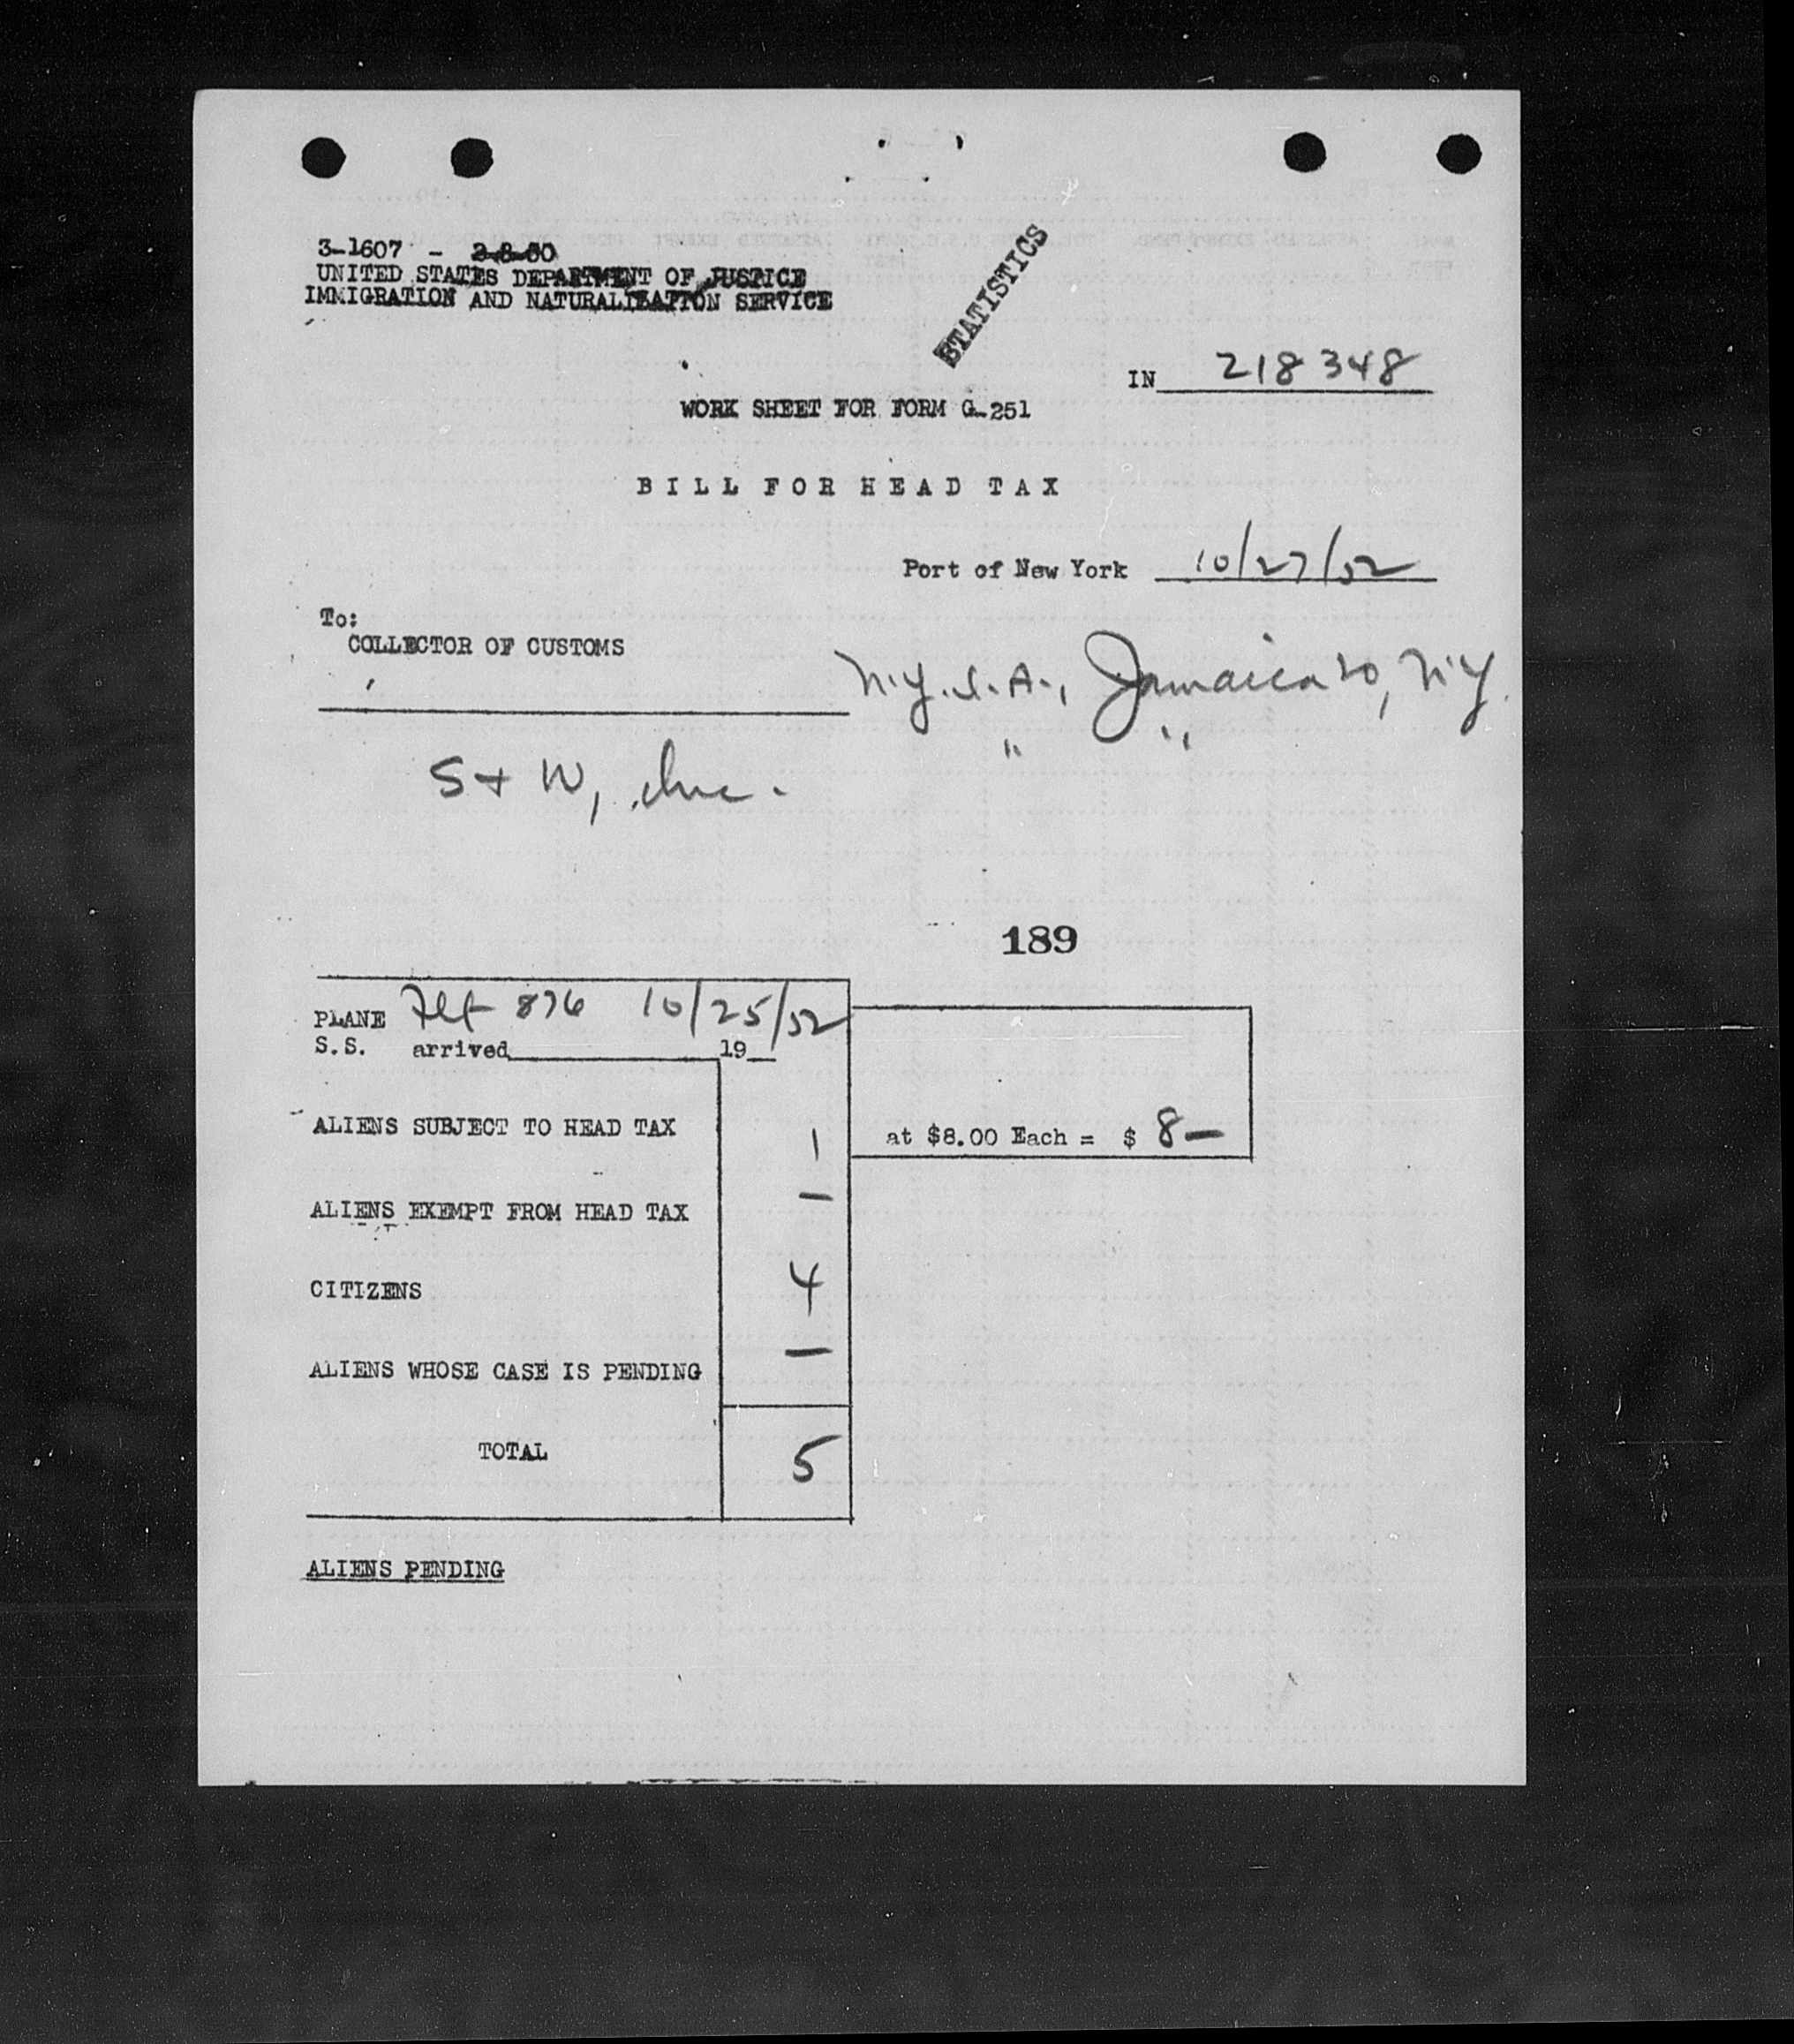 3-1607 - 2-8-50
UNITED STATES DEPARTMENT OF JUSTICE
IMMIGRATION AND NATURALIZATION SERVICE
STATISTICS
IN 218348
WORK SHEET FOR FORM G-251
BILL FOR HEAD TAX
Port of New York 10/27/52
To:
COLLECTOR OF CUSTOMS
N.Y.I.A., Jamaica 20, N.Y.
" "
S + W, Inc.
189
PLANE Flt 876 10/25/52
S.S. arrived 19
ALIENS SUBJECT TO HEAD TAX 1 at $8.00 Each = $ 8—
ALIENS EXEMPT FROM HEAD TAX —
CITIZENS 4
ALIENS WHOSE CASE IS PENDING —
TOTAL 5
ALIENS PENDING